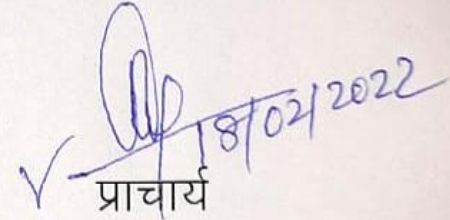 18/02/2022
प्राचार्य